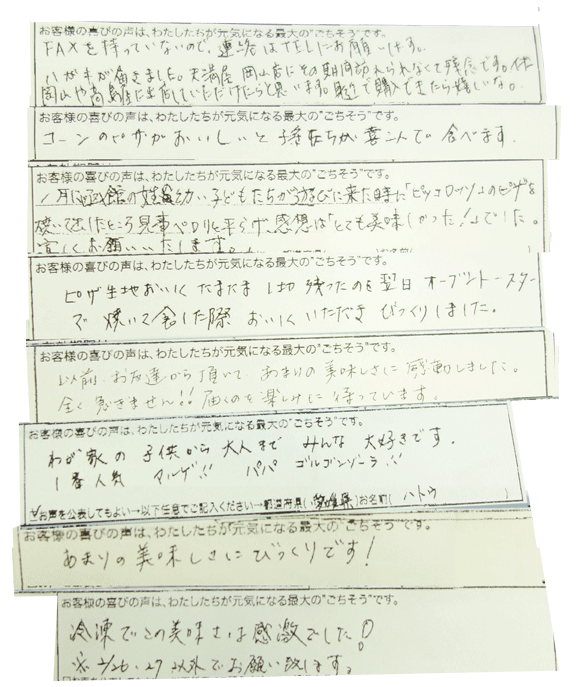 お客様の喜びの声は、わたしたちが元気になる最大の"ごちそう"です。
FAXを持っていないので、連絡はTELにお願いします。
ハガキが届きました。天満屋 岡山店にその期間訪れられなくて残念です。
岡山や高島屋に出店していただけたらと思います。で購入できたら嬉しいな。
お客様の喜びの声は、わたしたちが元気になる最大の"ごちそう"です。
コーンのピザがおいしいと子供たちが喜んで食べます。
お客様の喜びの声は、わたしたちが元気になる最大の"ごちそう"です。
1月に函館の幼い子どもたちが遊びに来た時に「ピッコロッソ」のピザを
焼いて出したところ見事ペロリと平らげ、感想は「とても美味しかった!」でした。
宜しくお願いいたします。
お客様の喜びの声は、わたしたちが元気になる最大の"ごちそう"です。
ピザ生地おいしく たまたま 1切残ったのを翌日 オーブントースター
で 焼いて食した際 おいしく いただき びっくりしました。
お客様の喜びの声は、わたしたちが元気になる最大の"ごちそう"です。
以前、お友達から頂いて、あまりの美味しさに感動しました。
全く飽きません!!届くのを楽しみに待っています。
お客様の喜びの声は、わたしたちが元気になる最大の"ごちそう"です。
わが家の 子供から 大人まで みんな 大好きです。
1番人気 マルゲ!! パパ ゴルゴンゾーラ!!
お声を公表してもよい→以下任意でご記入ください→都道府県(愛媛県)お名前(ハトウ )
お客様の喜びの声は、わたしたちが元気になる最大の"ごちそう"です。
あまりの美味しさにびっくりです!
お客様の喜びの声は、わたしたちが元気になる最大の"ごちそう"です。
冷凍でこの美味さは感激でした!
※2/26、27以外でお願い致します。